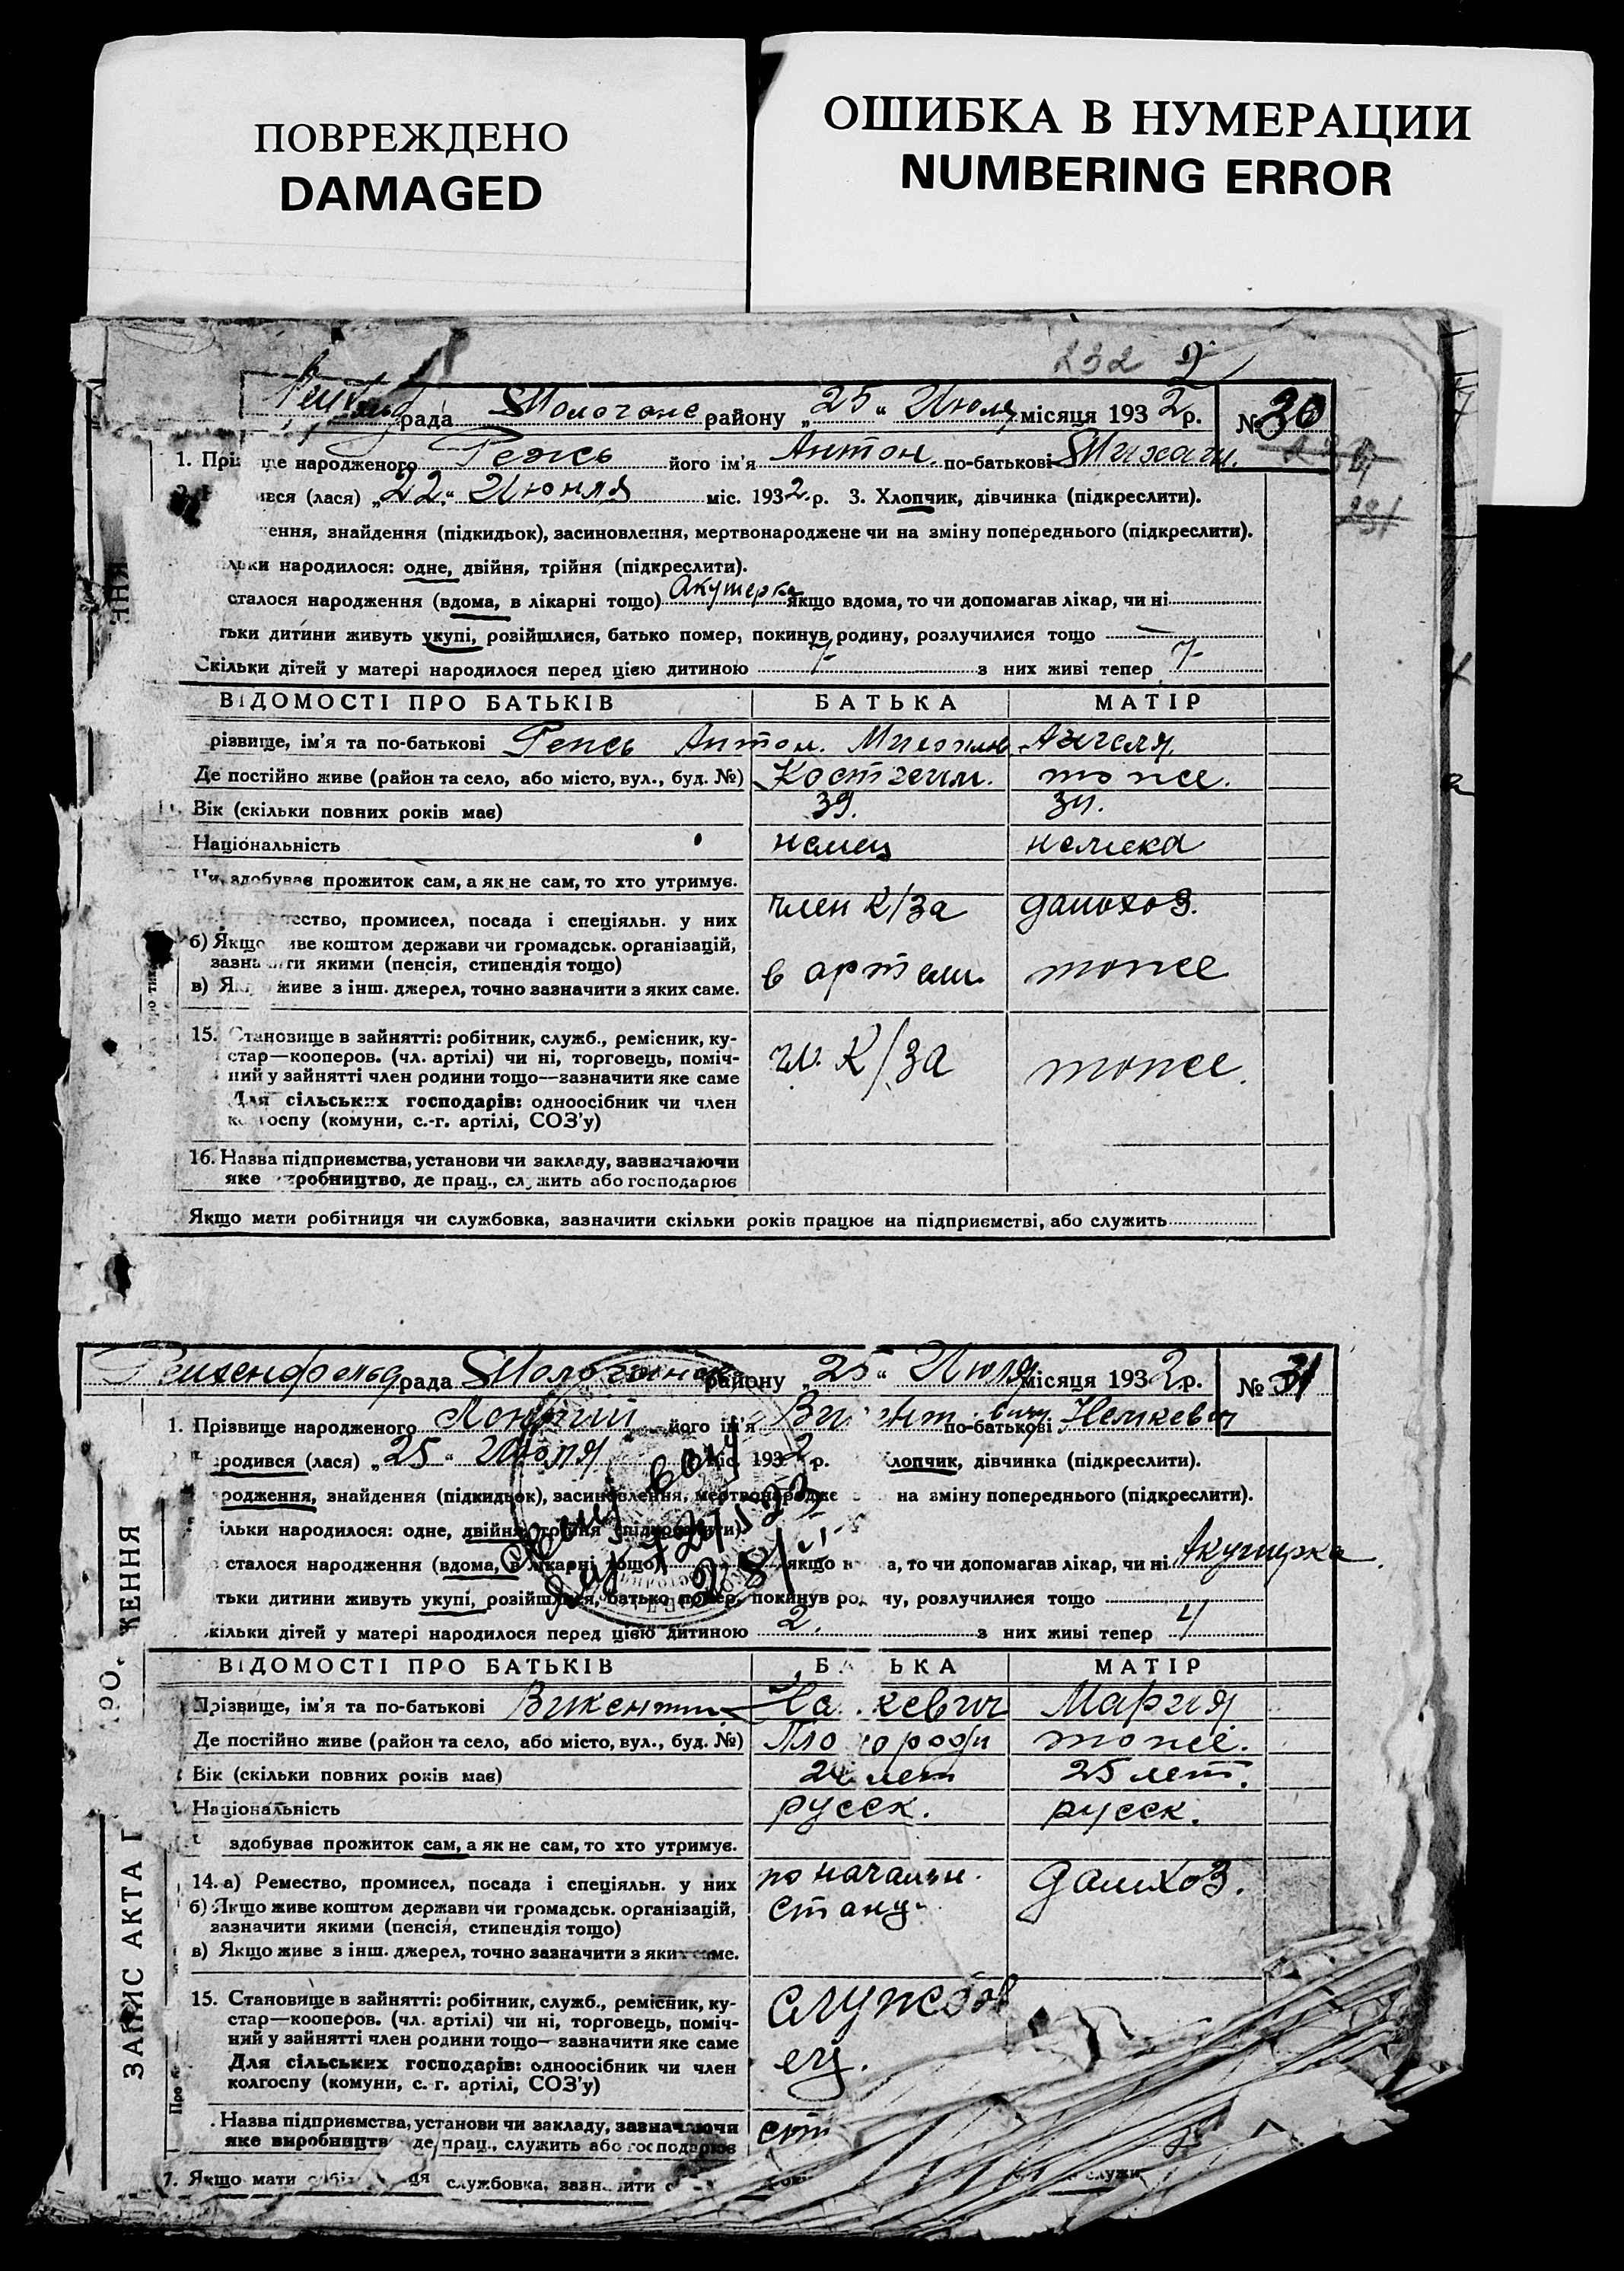 ПОВРЕЖДЕНО
DAMAGED
ОШИБКА В НУМЕРАЦИИ
NUMBERING ERROR
232
рада Молочанс району „25“ Июля місяця 1932 р. № 30
1. Прі ще народженого його ім'я Антон. по-батькові Михаил.
ився (лася) „22“ Июня міс. 1932 р. 3. Хлопчик, дівчинка (підкреслити).
ення, знайдення (підкидьок), засиновлення, мертвонароджене чи на зміну попереднього (підкреслити).
ільки народилося: одне, двійня, трійня (підкреслити).
сталося народження (вдома, в лікарні тощо) Акушерка якщо вдома, то чи допомагав лікар, чи ні
тьки дитини живуть укупі, розійшлися, батько помер, покинув родину, розлучилися тощо —
Скільки дітей у матері народилося перед цією дитиною 7 з них живі тепер 7
ВІДОМОСТІ ПРО БАТЬКІВ БАТЬКА МАТІР
різвище, ім'я та по-батькові Антон.
Де постійно живе (район та село, або місто, вул., буд. №) Костгейм. тоже.
Вік (скільки повних років має) 39. 34.
Національність немец немека
здобуває прожиток сам, а як не сам, то хто утримує.
ество, промисел, посада і спеціяльн. у них член К/за домохоз.
б) Якщо иве коштом держави чи громадськ. організацій,
зазна ити якими (пенсія, стипендія тощо) в артели. тоже
в) Як живе з інш. джерел, точно зазначити з яких саме.
15. Становище в зайнятті: робітник, служб., ремісник, ку-
стар—кооперов. (чл. артілі) чи ні, торговець, поміч- чл. К/за тоже.
ний у зайнятті член родини тощо—зазначити яке саме
Для сільських господарів: одноосібник чи член
ко госпу (комуни, с.-г. артілі, СОЗ'у)
16. Назва підприємства, установи чи закладу, зазначаючи
яке робництво, де прац., служить або господарює
Якщо мати робітниця чи службовка, зазначити скільки років працює на підприємстві, або служить
Рейхенфельд рада Молочанск району „25“ Июля місяця 1932 р. № 31
1. Прізвище народженого його ім'я по-батькові
родився (лася) „25“ Июля міс. 1932 р. лопчик, дівчинка (підкреслити).
родження, знайдення (підкидьок), засиновлення, мертвонародже на зміну попереднього (підкреслити).
ільки народилося: одне, двійня, трійня (підкреслити)
сталося народження (вдома, в лікарні тощо) якщо в а, то чи допомагав лікар, чи ні Акушерка.
тьки дитини живуть укупі, розійшлися, батько помер, покинув род ну, розлучилися тощо
кільки дітей у матері народилося перед цією дитиною 2. з них живі тепер 4
ВІДОМОСТІ ПРО БАТЬКІВ Б ЬКА МАТІР
Прізвище, ім'я та по-батькові Викентий Мария
Де постійно живе (район та село, або місто, вул., буд. №) тоже.
Вік (скільки повних років має) лет 25 лет.
Національність русск. русск.
здобуває прожиток сам, а як не сам, то хто утримує.
14. а) Ремество, промисел, посада і спеціяльн. у них по начальн. домхоз.
б) Якщо живе коштом держави чи громадськ. організацій, станц.
зазначити якими (пенсія, стипендія тощо)
в) Якщо живе з інш. джерел, точно зазначити з яких саме.
15. Становище в зайнятті: робітник, служб., ремісник, ку- службов
стар—кооперов. (чл. артілі) чи ні, торговець, поміч-
ний у зайнятті член родини тощо—зазначити яке саме
Для сільських господарів: одноосібник чи член ец.
колгоспу (комуни, с.-г. артілі, СОЗ'у)
Назва підприємства, установи чи закладу, зазначаючи ст
яке виробництв де прац., служить або господарює
7. Якщо мати службовка, зазн ити
ЗАПИС АКТА
ЖЕННЯ